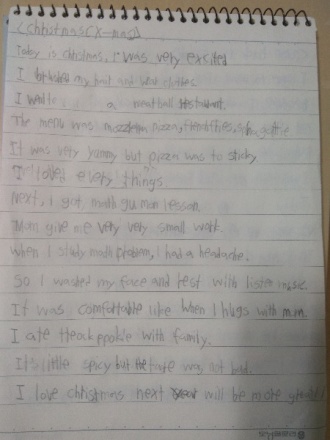 <Christmas(X-mas)>
Today is christmas, I was very excited
I my hair and wear clothes.
I went to a meatball restaurant.
The menu was pizza, frenchfries,
It was very yummy but pizza was to sticky
I loved every things
Next, I got math gu mon lesson.
Mom give me very very small work.
When I study math problem, I had a headache.
So I washed my face and rest with listen music.
It was comfortable like when I hugs with mom.
I ate tteokppokie with family.
It's little spicy but taste was not bad.
I love christmas next year will be more